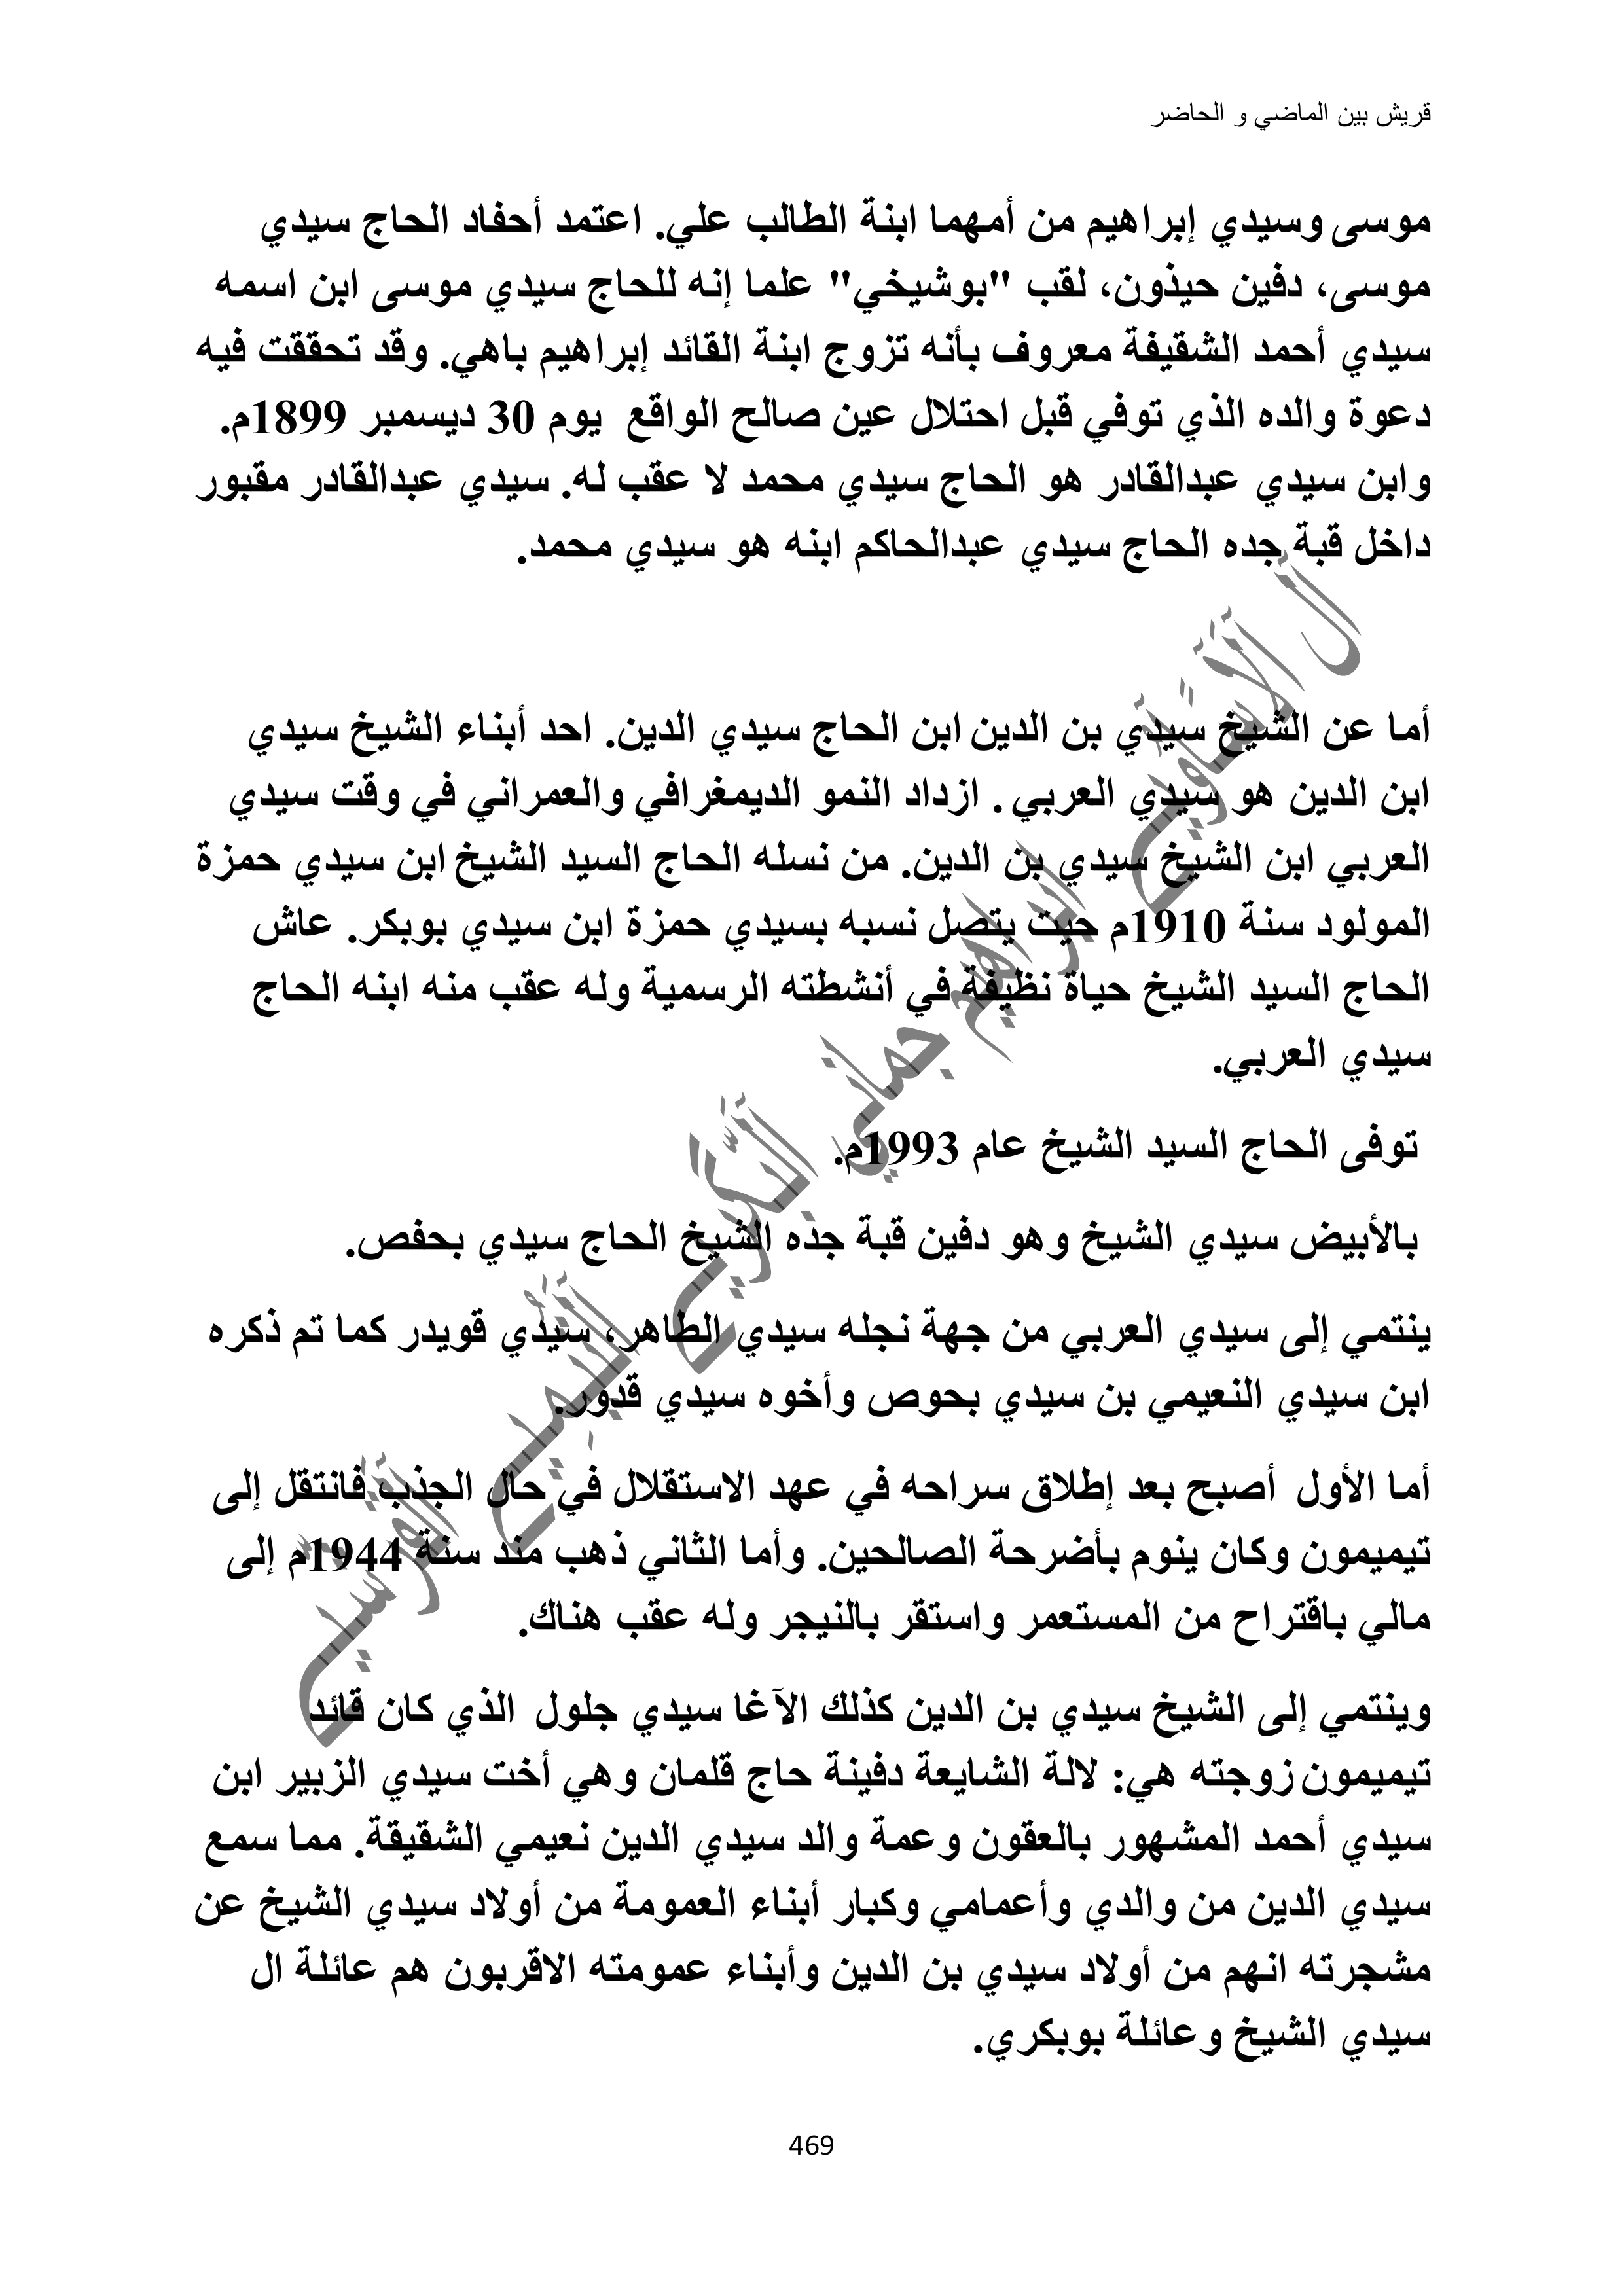 قريش بين الماضي و الحاضر
موسى وسيدي إبراهيم من أمهما ابنة الطالب علي. اعتمد أحفاد الحاج سيدي
موسى، دفين حيذون، لقب "بوشيخي" علما إنه للحاج سيدي موسى ابن اسمه
سيدي أحمد الشقيفة معروف بأنه تزوج ابنة القائد إبراهيم باهي. وقد تحققت فيه
دعوة والده الذي توفي قبل احتلال عين صالح الواقع يوم 30 ديسمبر 1899م.
وابن سيدي عبدالقادر هو الحاج سيدي محمد لا عقب له. سيدي عبدالقادر مقبور
داخل قبة جده الحاج سيدي عبدالحاكم ابنه هو سيدي محمد.
أما عن الشيخ سيدي بن الدين ابن الحاج سيدي الدين. احد أبناء الشيخ سيدي
ابن الدين هو سيدي العربي . ازداد النمو الديمغرافي والعمراني في وقت سيدي
العربي ابن الشيخ سيدي بن الدين. من نسله الحاج السيد الشيخ ابن سيدي حمزة
المولود سنة 1910م حيت يتصل نسبه بسيدي حمزة ابن سيدي بوبكر. عاش
الحاج السيد الشيخ حياة نظيفة في أنشطته الرسمية وله عقب منه ابنه الحاج
سيدي العربي.
توفى الحاج السيد الشيخ عام 1993م.
بالأبيض سيدي الشيخ وهو دفين قبة جذه الشيخ الحاج سيدي بحفص.
ينتمي إلى سيدي العربي من جهة نجله سيدي الطاهر، سيدي قويدر كما تم ذكره
ابن سيدي النعيمي بن سيدي بحوص وأخوه سيدي قدور.
أما الأول أصبح بعد إطلاق سراحه في عهد الاستقلال في حال الجذب فانتقل إلى
تيميمون وكان ينوم بأضرحة الصالحين. وأما الثاني ذهب مند سنة 1944م إلى
مالي باقتراح من المستعمر واستقر بالنيجر وله عقب هناك.
وينتمي إلى الشيخ سيدي بن الدين كذلك الآغا سيدي جلول الذي كان قائد
تيميمون زوجته هي: لالة الشايعة دفينة حاج قلمان وهي أخت سيدي الزبير ابن
سيدي أحمد المشهور بالعقون وعمة والد سيدي الدين نعيمي الشقيقة. مما سمع
سيدي الدين من والدي وأعمامي وكبار أبناء العمومة من أولاد سيدي الشيخ عن
مشجرته انهم من أولاد سيدي بن الدين وأبناء عمومته الاقربون هم عائلة ال
سيدي الشيخ وعائلة بوبكري.
469